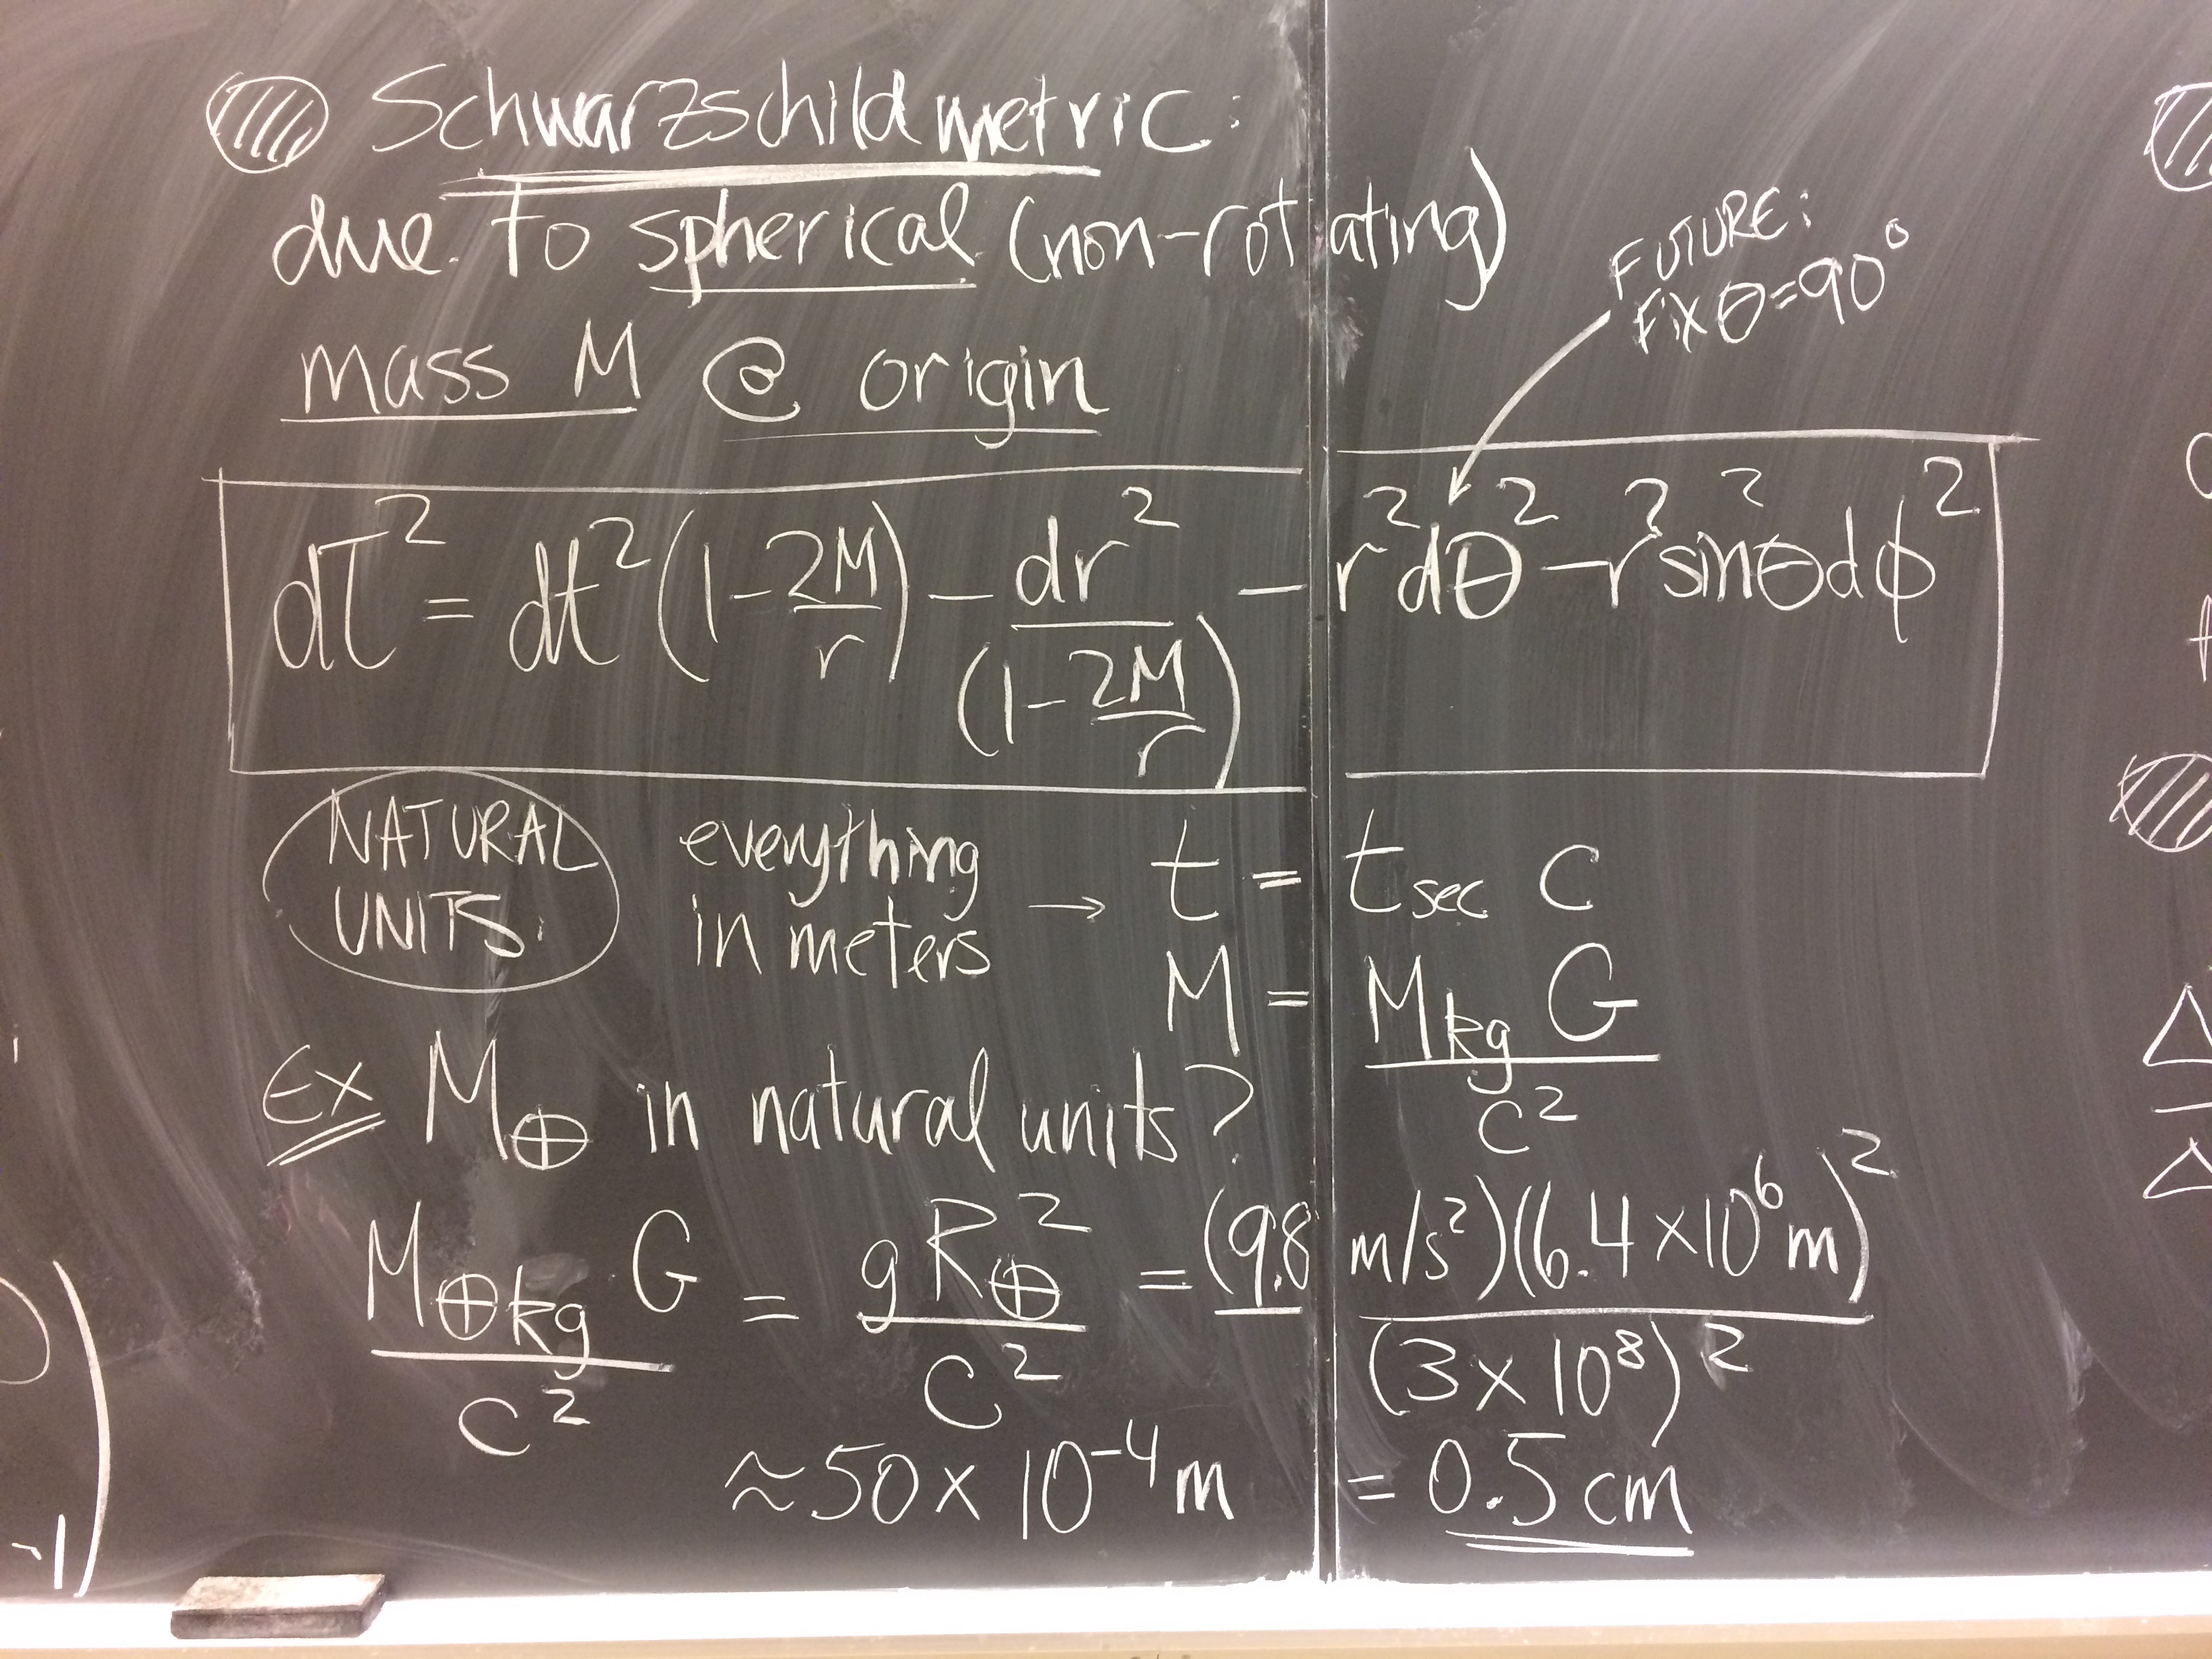 Schwarzschild metric:
due to spherical (non-rotating)
mass M @ origin
FUTURE:
FIX θ=90°
dτ² = dt²(1-2M/r) - dr²/(1-2M/r) - r²dθ² - r²sin²θdϕ²
NATURAL
UNITS.
everything
in meters
→ t = t_sec c
M = M_kg G/c²
Ex M_⊕ in natural units?
M_⊕kg G/c² = gR_⊕²/c² = (9.8 m/s²)(6.4×10⁶m)²/(3×10⁸)²
≈50×10⁻⁴m = 0.5cm